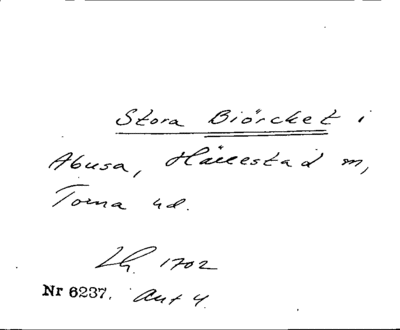 Stora Biörcket i
Abusa, Hällestad m,
Torna hd.
Lh. 1702
Nr 6237. Akt 4.